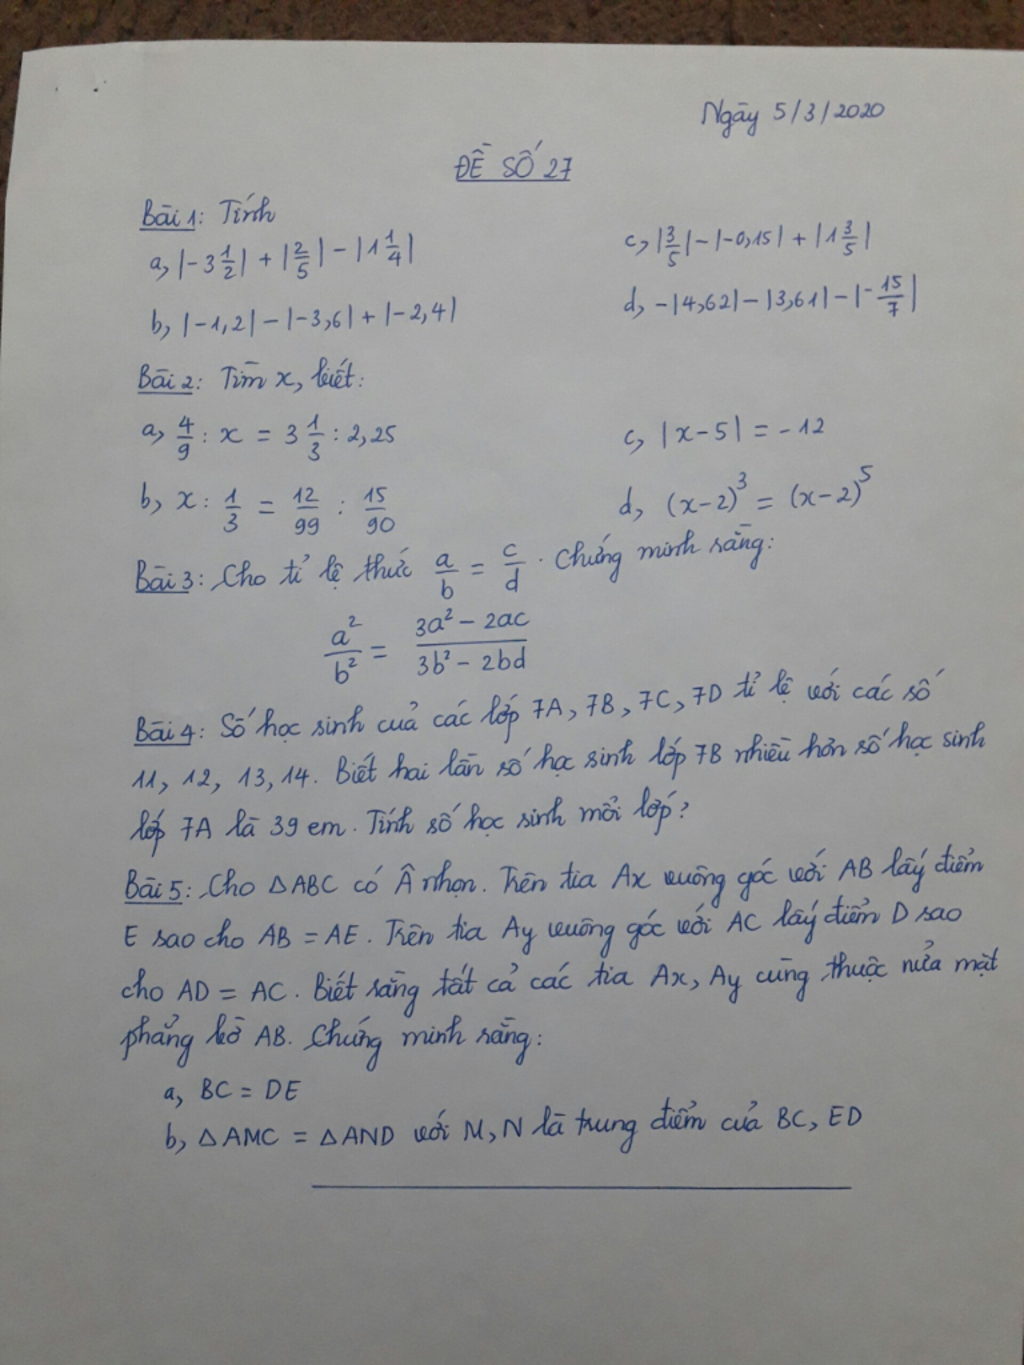 Ngày 5/3/2020
ĐỀ SỐ 27
Bài 1: Tính
a, |-3 1/2| + |2/5| - |1 1/4|
c, |3/5| - |-0,15| + |1 3/5|
b, |-1,2| - |-3,6| + |-2,4|
d, -|4,62| - |3,61| - |-15/7|
Bài 2: Tìm x, biết:
a, 4/9 : x = 3 1/3 : 2,25
c, |x-5| = -12
b, x : 1/3 = 12/99 : 15/90
d, (x-2)³ = (x-2)⁵
Bài 3: Cho tỉ lệ thức a/b = c/d. Chứng minh rằng:
a²/b² = (3a² - 2ac)/(3b² - 2bd)
Bài 4: Số học sinh của các lớp 7A, 7B, 7C, 7D tỉ lệ với các số
11, 12, 13, 14. Biết hai lần số học sinh lớp 7B nhiều hơn số học sinh
lớp 7A là 39 em. Tính số học sinh mỗi lớp?
Bài 5: Cho △ABC có Â nhọn. Trên tia Ax vuông góc với AB lấy điểm
E sao cho AB = AE. Trên tia Ay vuông góc với AC lấy điểm D sao
cho AD = AC. Biết rằng tất cả các tia Ax, Ay cùng thuộc nửa mặt
phẳng bờ AB. Chứng minh rằng:
a, BC = DE
b, △AMC = △AND với M, N là trung điểm của BC, ED